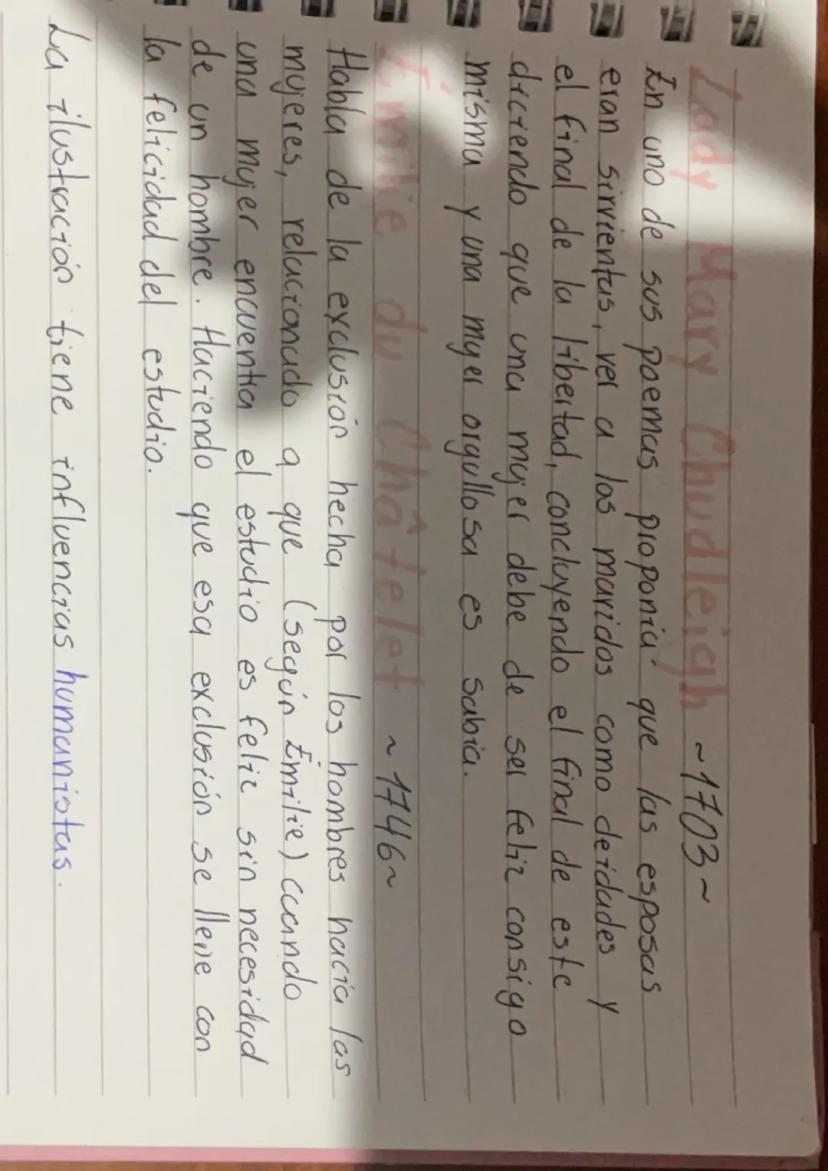 Lady Mary Chudleigh ~1703~
En uno de sus poemas proponía que las esposas
eran sirvientas, ver a los maridos como deidades y
el final de la libertad, concluyendo el final de este
diciendo que una mujer debe de ser feliz consigo
misma y una mujer orgullosa es sabia.
Émilie du Châtelet ~1746~
Habla de la exclusión hecha por los hombres hacia las
mujeres, relacionado a que (según Émilie) cuando
una mujer encuentra el estudio es feliz sin necesidad
de un hombre. Haciendo que esa exclusión se llene con
la felicidad del estudio.
La ilustración tiene influencias humanistas.